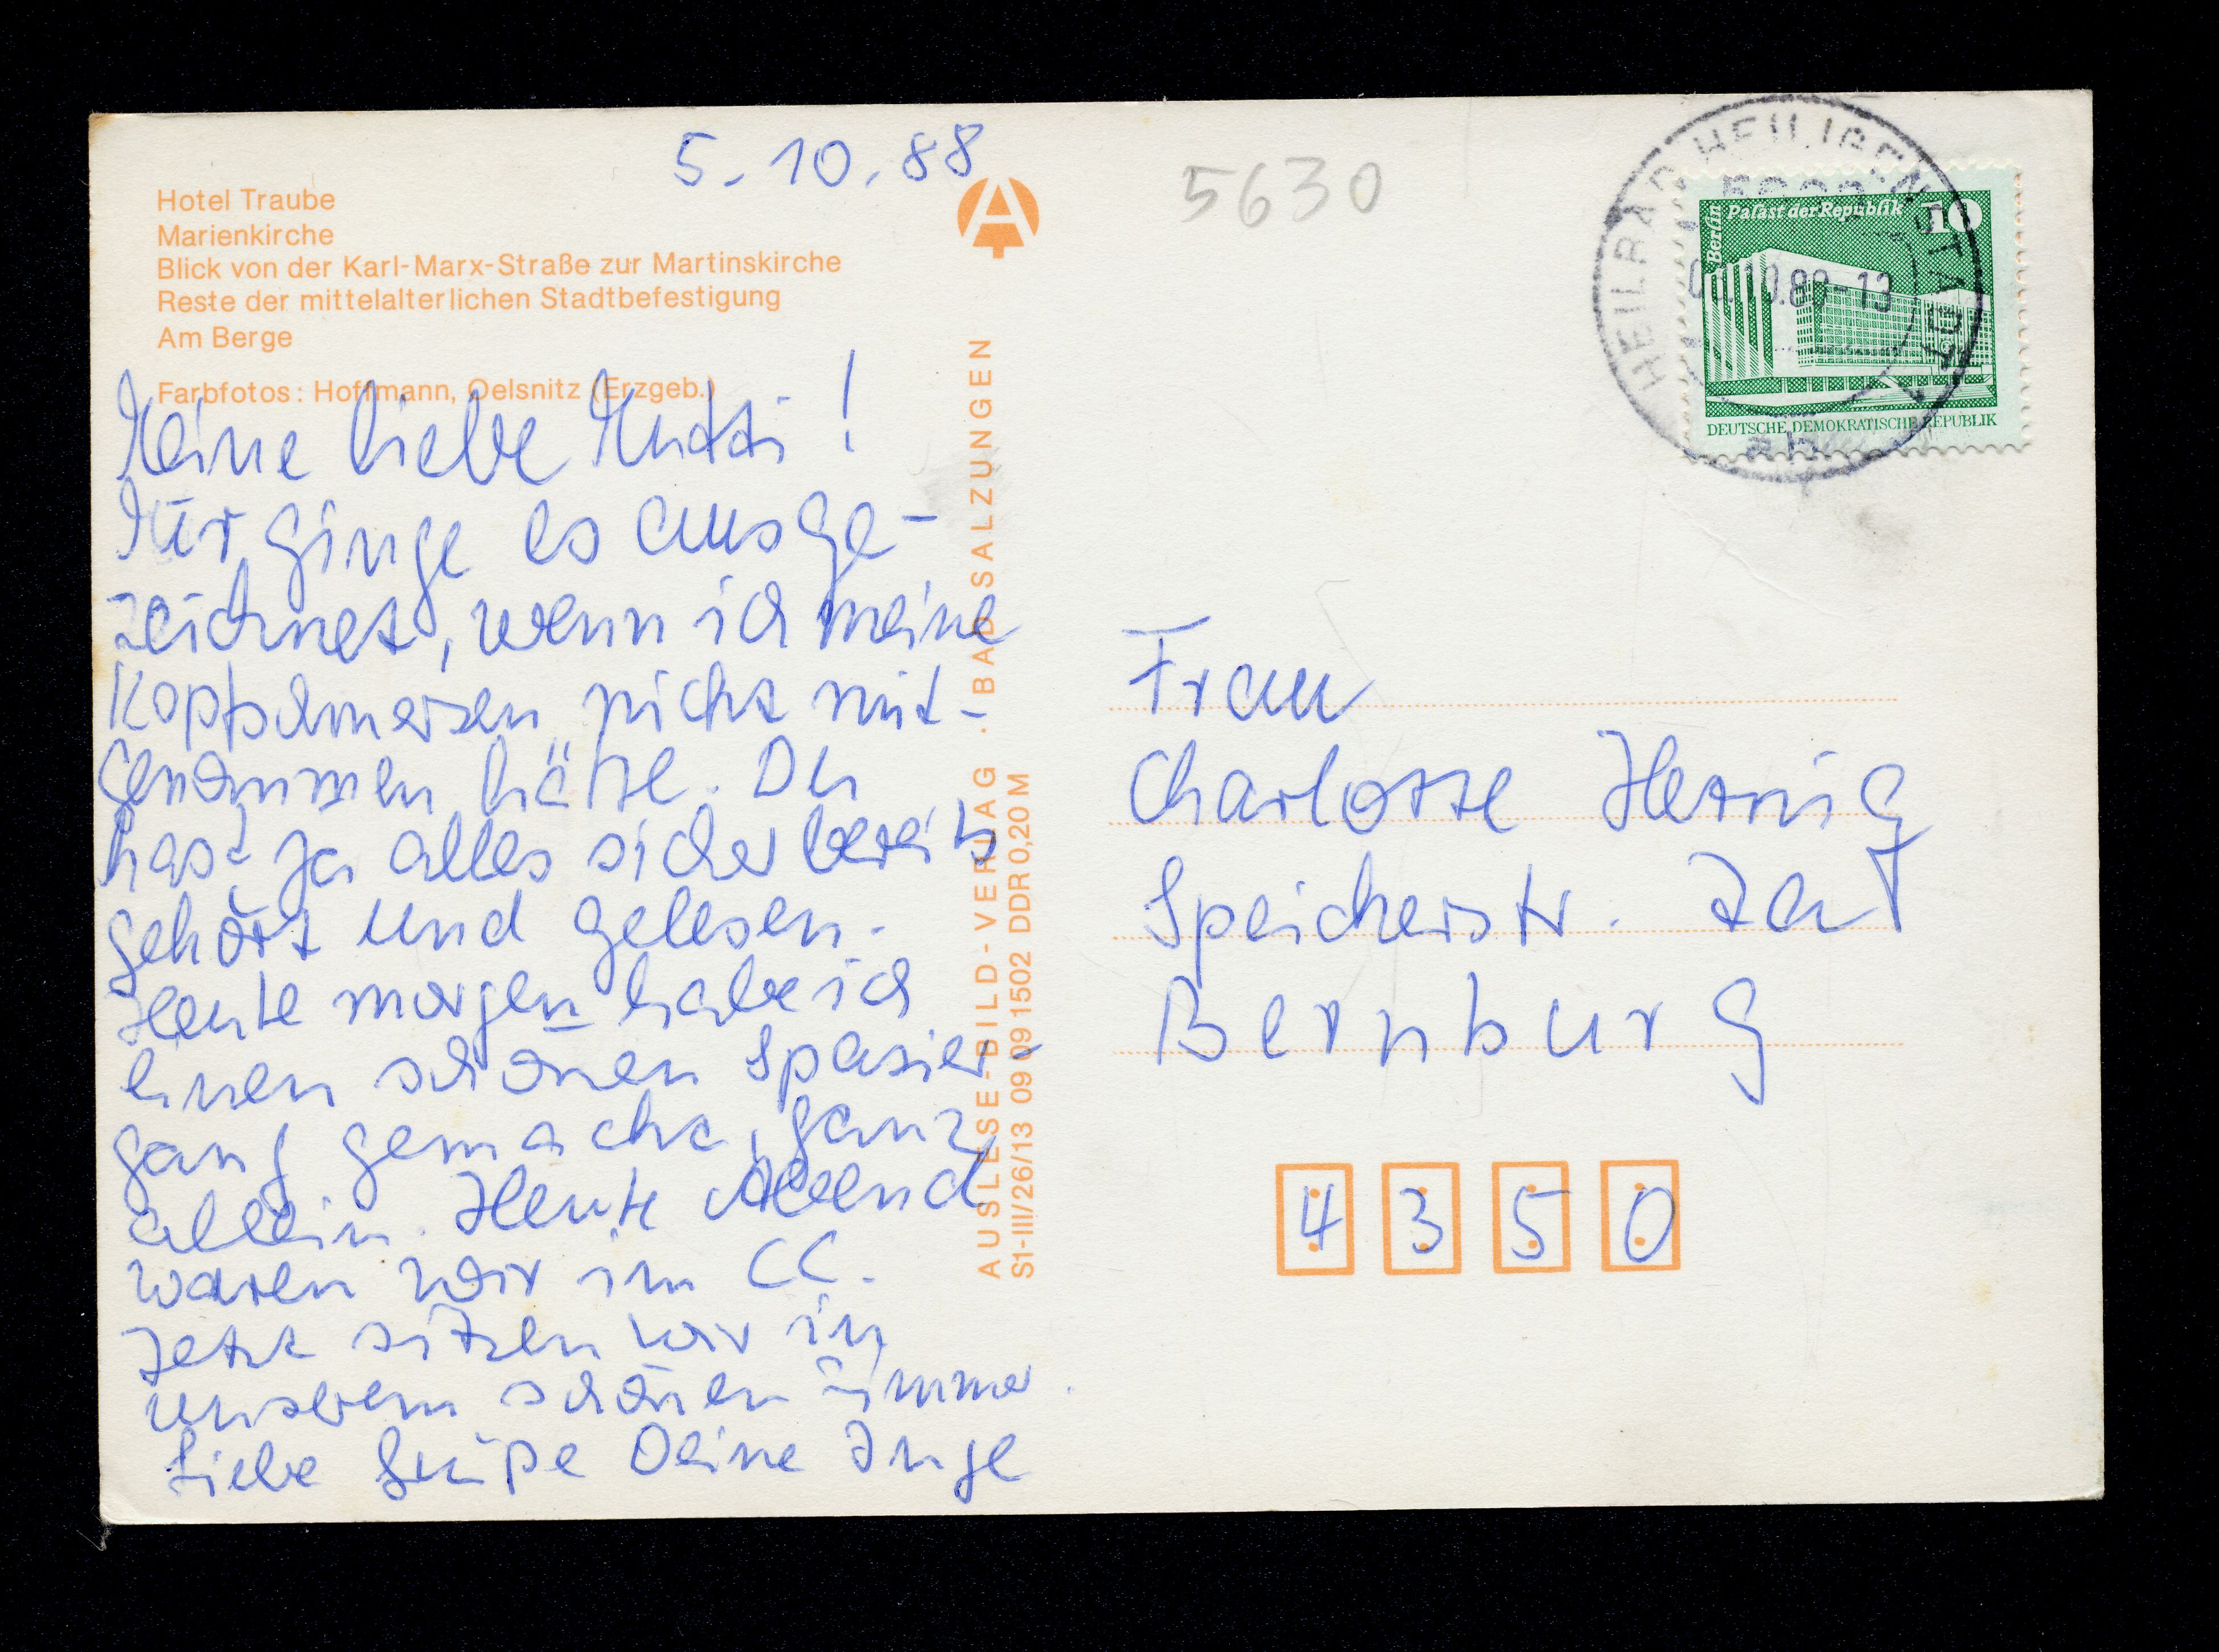 5.10.88
Hotel Traube
Marienkirche
Blick von der Karl-Marx-Straße zur Martinskirche
Reste der mittelalterlichen Stadtbefestigung
Am Berge
Farbfotos: Hoffmann, Oelsnitz (Erzgeb.)
Meine liebe Mutti!
Mir ginge es ausge-
zeichnet, wenn ich meine
Kopfschmerzen nicht mit-
genommen hätte. Du
hast ja alles sicher bereits
gehört und gelesen.
Heute morgen habe ich
einen schönen Spazier-
gang gemacht, ganz
allein. Heute Abend
waren wir im CC.
Jetzt sitzen wir in
unserem schönen Zimmer.
Liebe Grüße Deine Inge
AUSLESE-BILD-VERLAG · BAD SALZUNGEN
S1-III/26/13 09 09 1502 DDR 0,20 M
5630
HEILBAD HEILIGENSTADT
Berlin
Palast der Republik
10
DEUTSCHE DEMOKRATISCHE REPUBLIK
ah
Frau
Charlotte
Speicherstr.
Bernburg
4350